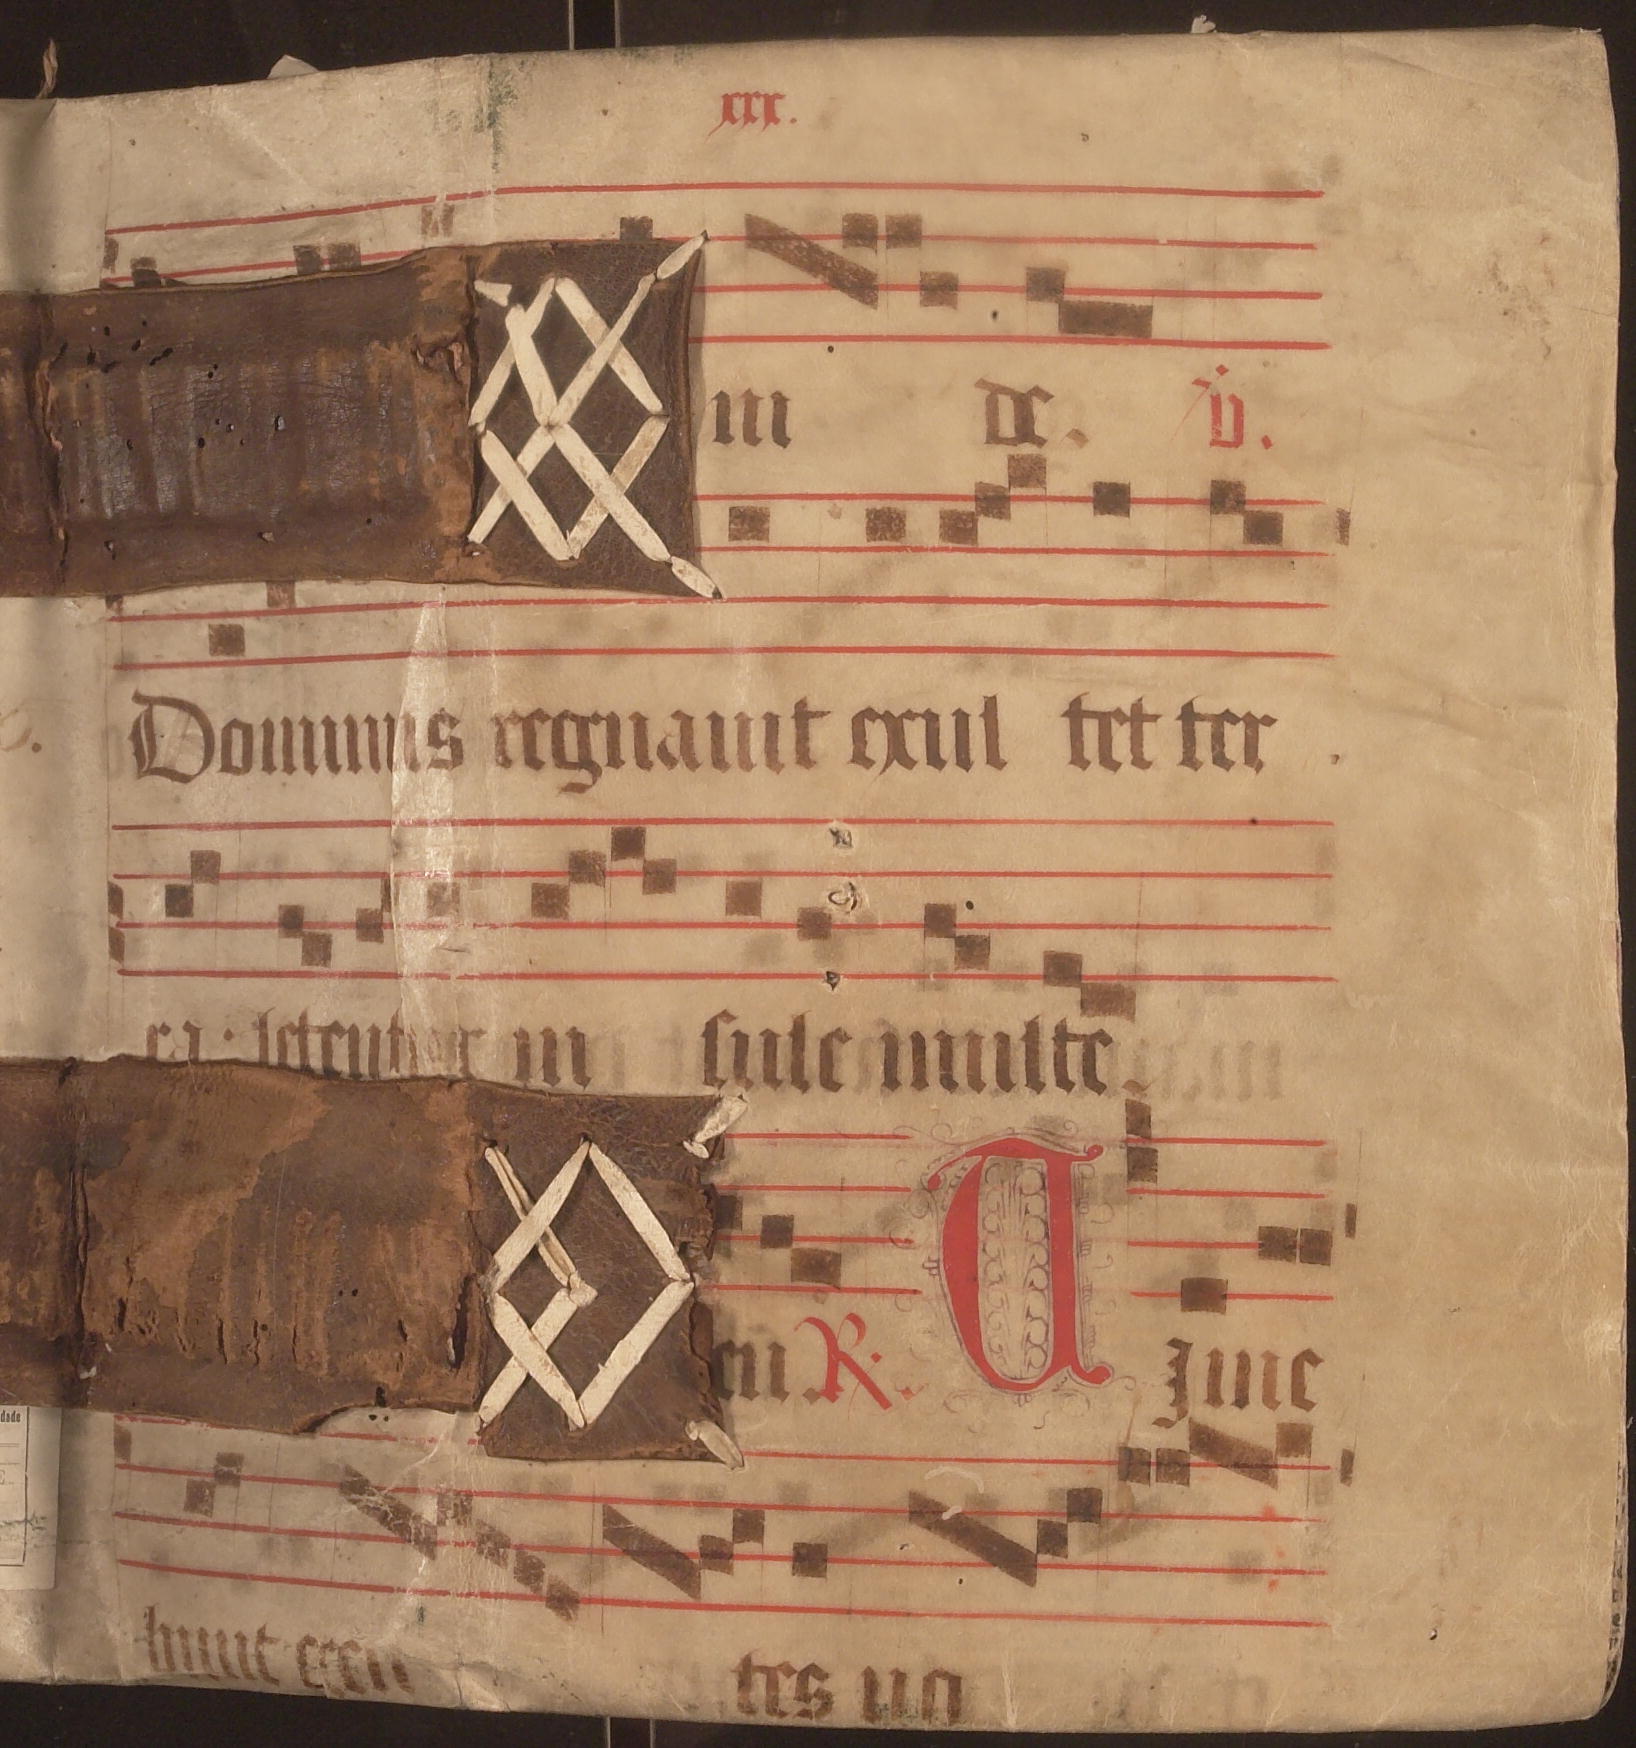 xxx.
ni de. v.
Dominus regnauit exul tet ter
ra · letentur in sule multe
R. A Juue
bunt gen tes no
dade